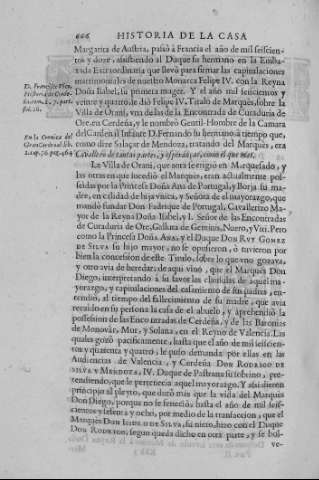 666 HISTORIA DE LA CASA
Margarita de Austria, passò à Francia el año de mil seiscien-
tos y doze, asistiendo al Duque su hermano en la Emba-
xada Extraordinaria que llevò para firmar las capitulaciones
matrimoniales de nuestro Monarca Felipe IV. con la Reyna
Doña Isabel, su primera muger. Y el año mil seiscientos y
veinte y quatro, le diò Felipe IV. Titulo de Marquès, sobre la
Villa de Orani, vna de las de la Encontrada de Curaduria de
Ore, en Cerdeña, y le nombrò Gentil-Hombre de la Camara
del Cardenal Infante D. Fernando su hermano à tiempo que,
como dize Salaçar de Mendoza, tratando del Marquès, era
Cavallero de tantas partes, y esperanças, como el que mas.
La Villa de Orani, que aora se erigiò en Marquesado, y
las otras en que sucediò el Marquès, eran actualmente pos-
seidas por la Princesa Doña Ana de Portugal, y Borja su ma-
dre, en calidad de hija vnica, y Señora de el mayorazgo, que
mandò fundar Don Fadrique de Portugal, Cavallerizo Ma-
yor de la Reyna Doña Isabel, y I. Señor de las Encontradas
de Curaduria de Ore, Gallura de Geminis, Nuero, y Viti. Pero
como la Princesa Doña Ana, y el Duque DON RUY GOMEZ
DE SILVA su hijo mayor, no se opusieron, ò tuvieron por
bien la concession de este Titulo, sobre lo que vno gozava,
y otro avia de heredar: de aqui vino, que el Marquès DON
Diego, interpretando à su favor las clausulas de aquel ma-
yorazgo, y capitulaciones del casamiento de sus padres, en-
tendiò, al tiempo del fallecimiento de su madre, que avia
recaido en su persona la casa de el abuelo, y aprehendiò la
possession de las Encontradas de Cerdeña, y de las Baronias
de Monovàr, Mur, y Solana, en el Reyno de Valencia. Las
quales gozò pacificamente, hasta que el año de mil seiscien-
tos y quarenta y quatro, le puso demanda por ellas en las
Audiencias de Valencia, y Cerdeña DON RODRIGO DE
SILVA Y MENDOZA, IV. Duque de Pastrana su sobrino, pre-
tendiendo, que le pertenecia aquel mayorazgo. Y assi dieron
principio al pleyto, que durò mas que la vida del Marquès
DON Diego, porque no se feneciò, hasta el año de mil seis-
cientos y sesenta y ocho, por medio de la transaccion, que el
Marquès DON ISIDRO DE SILVA, su nieto, hizo con el Duque
DON RODRIGO, segun queda dicho en otra parte, y se bol-
ve-